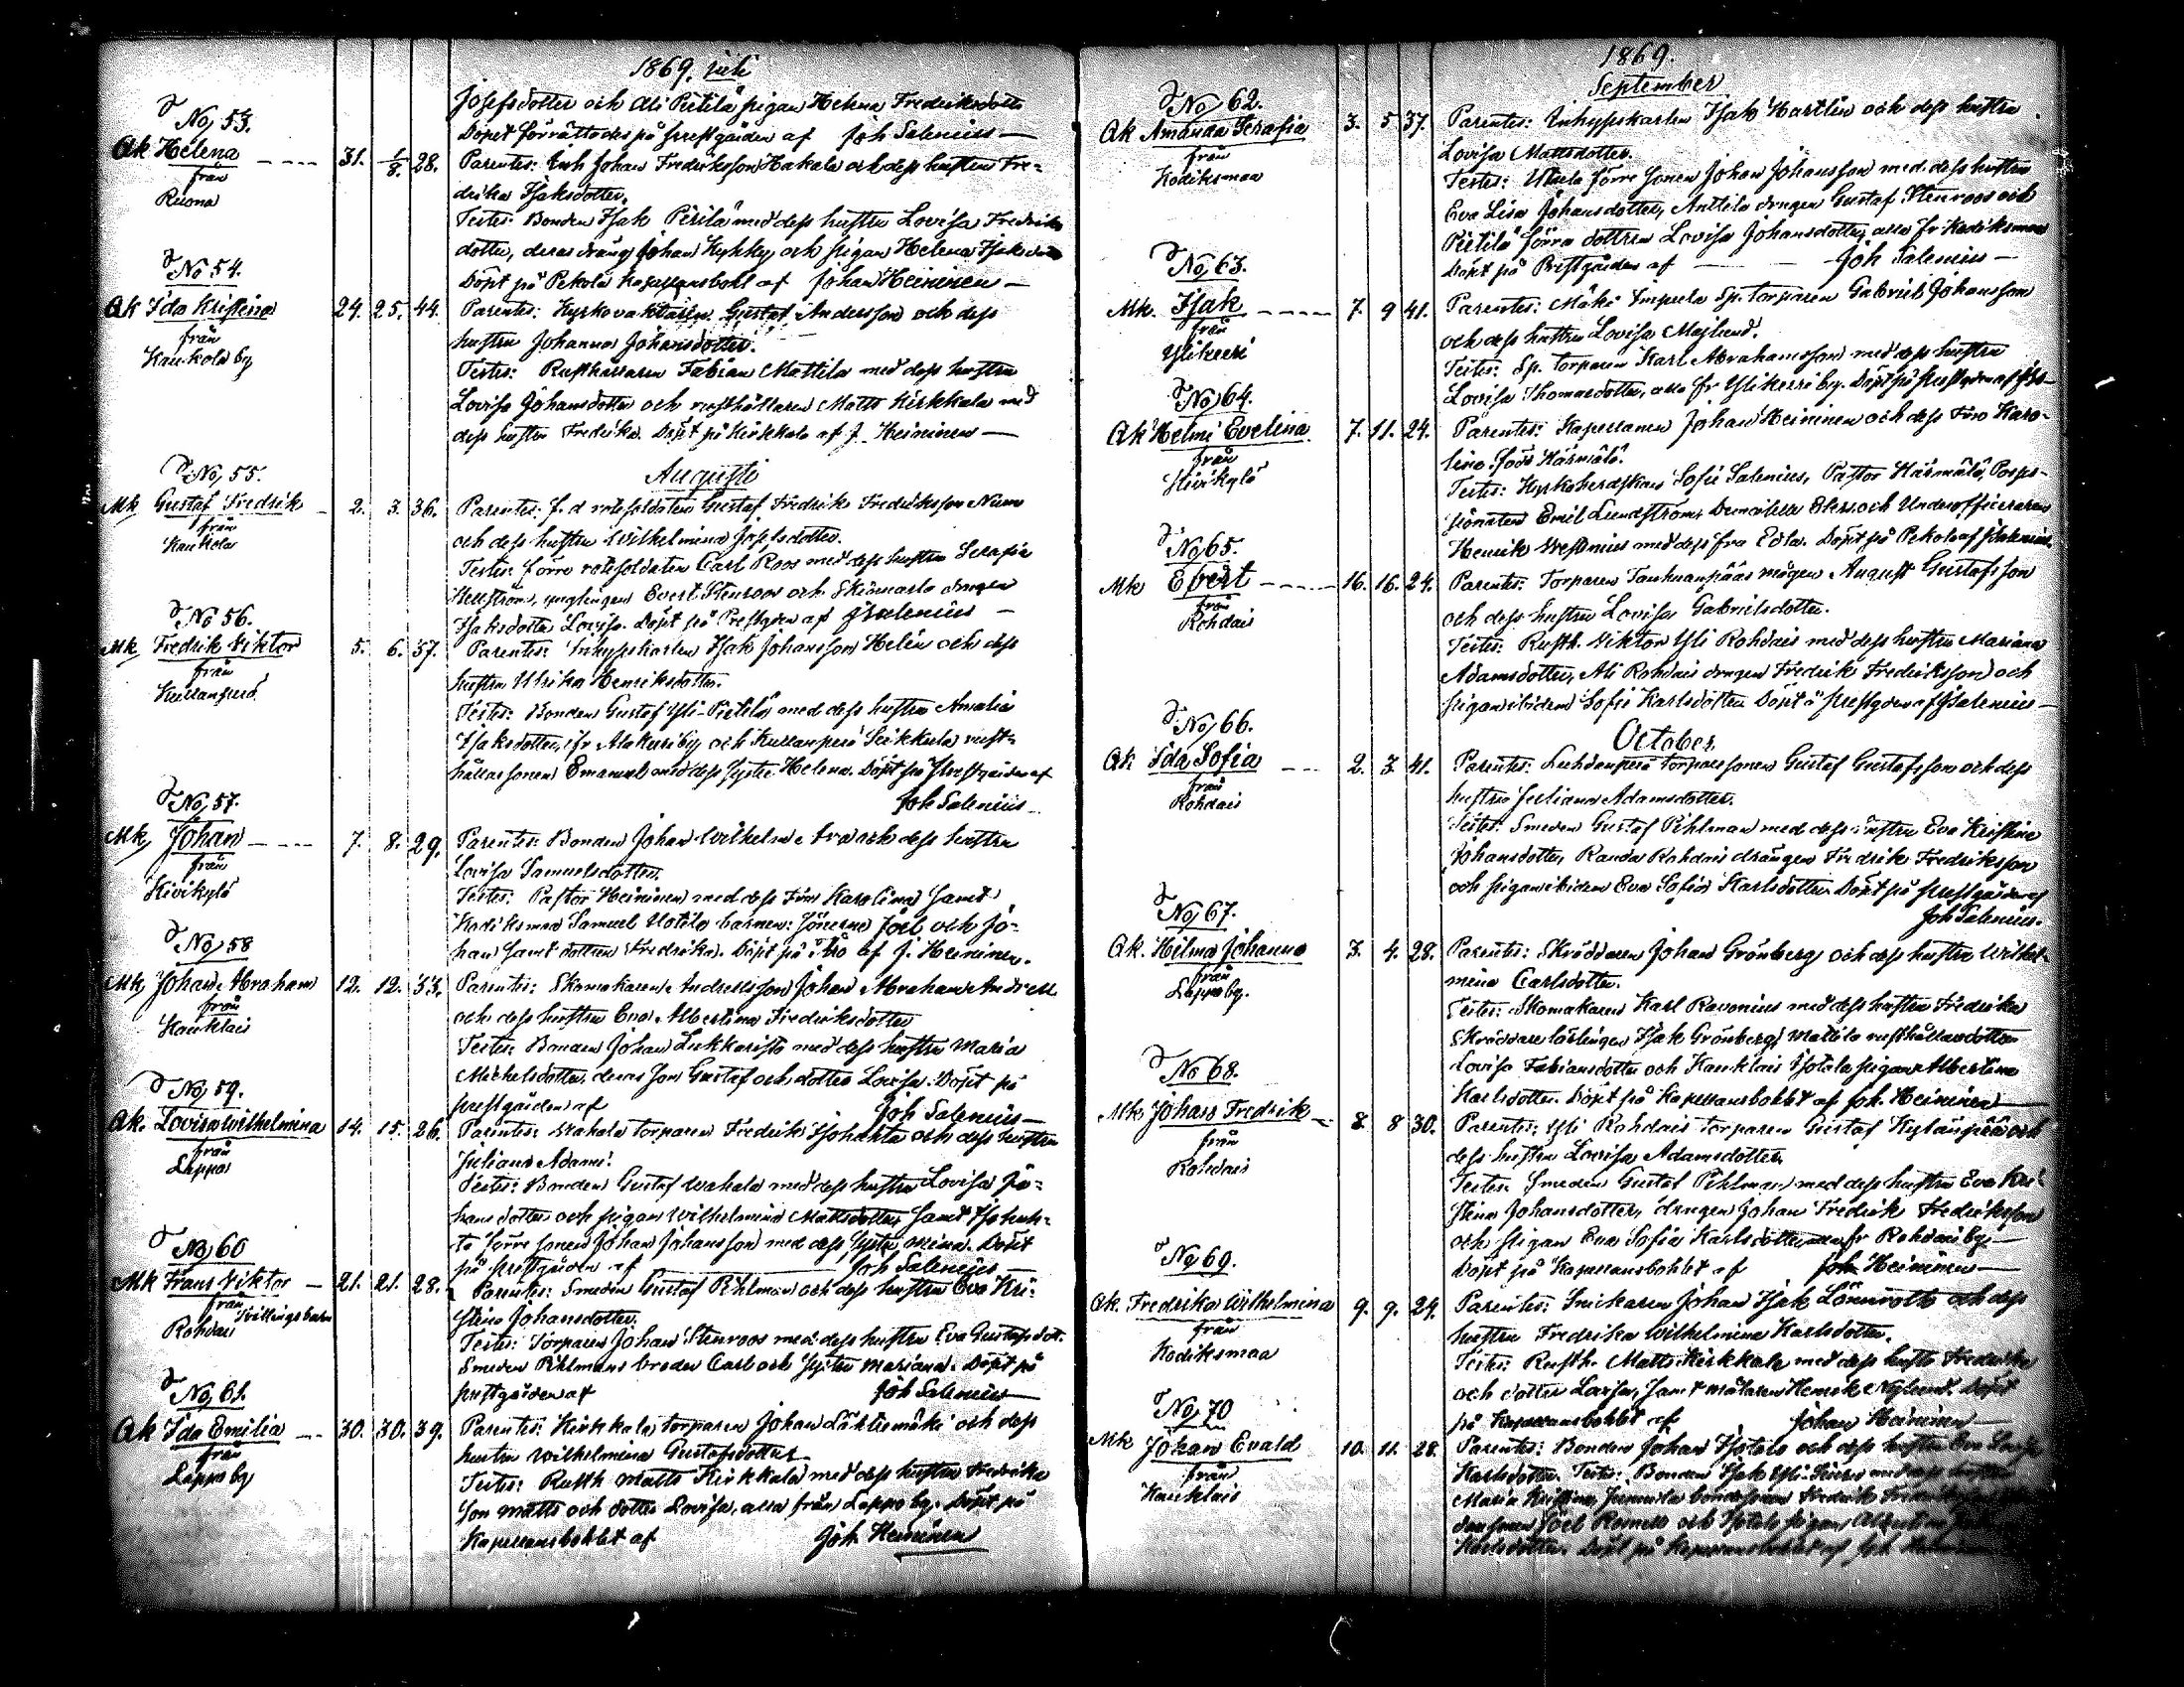 1869. juli
Josefsdotter och Ali Pietilä pigan Helena Fredriksdotter
Döpet förrättades på prestgården af Joh Salenius —
No 53.
Qk Helena ---- 31. 1/8. 28. Parentes: Inh Johan Fredriksson Hakala och dess hustru Fre-
från
Ruona
drika Isaksdotter.
Testes: Bonden Isak Pietilä med dess hustru Lovisa Fredriks
dotter, deras dräng Johan Kyhky och pigan Helena Isaksdotter
Döpt på Pekola Kapellansbohl af Johan Heininen —
No 54.
Qk Ida Kristina 24. 25. 44. Parentes: Kyrkovaktaren Gustaf Andersson och dess
från
Kaukola by
hustru Johanna Johansdotter.
Testes: Rusthållaren Fabian Mattila med dess hustru
Lovisa Johansdotter och rusthållaren Matts Kirkkala med
dess hustru Fredrika. Döpt på Kirkkala af J. Heininen —
Augusti
No 55.
Mk Gustaf Fredrik - 2. 3. 36. Parentes: f. d rotesoldaten Gustaf Fredrik Fredriksson
från
Kaukola
och dess hustru Wilhelmina Josefsdotter.
Testes: förre rotesoldaten Carl Roos med dess hustru Serafia
ynglingen Evert Stenroos och drngen
Isaksdotter Lovisa. Döpt på Prestgrden af J Salenius —
No 56.
Mk Fredrik Viktor 5. 6. 37. Parentes: Inhyseskarlen Isak Johansson Helin och dess
från
Kullanperä
hustru Ulrika Henriksdotter.
Testes: Bonden Gustaf Yli-Pietilä med dess hustru Amalia
Isaksdotter, fr Alakeri by och Kullanperä Seikkula rust-
hållarsonen Emanuel med dess syster Helena. Döpt på prestgården af
Joh Salenius —
No 57.
Mk Johan ---- 7. 8. 29. Parentes: Bonden Johan Wilhelm Aro och dess hustru
från
Kivikylä
Lovisa Samuelsdotter.
Testes: Pastor Heininen med dess Fru Karolina samt
Kodiksmaa Samuel Uotila barnen: Sönerna Joel och Jo-
han samt dottren Fredrika. Döpt på Aro af J. Heininen.
No 58
Mk Johan Abraham 12. 12. 33. Parentes: Skomakaren Andersson Johan Abraham
från
Kauklais
och dess hustru Eva Albertina Fredriksdotter
Testes: Bonden Johan Lukkaristo med dess hustru Maria
Michelsdotter, deras son Gustaf och dotter Lovisa. Döpt på
prestgården af Joh Salenius —
No 59.
Qk. Lovisa Wilhelmina 14. 15. 26. Parentes: Wahala torparen Fredrik Isohuhta och dess hustru
från
Lappo
Juliana Adams.
Testes: Bonden Gustaf Wahala med dess hustru Lovisa Jo-
hans dotter och pigan Wilhelmina Mattsdotter, samt Isohuh-
ta förre sonen Johan Johansson med dess syster Mina. Döpt
på prestgården af Joh Salenius —
No 60
Mk Frans Viktor — 21. 21. 28. Parentes: Smeden Gustaf Pihlman och dess hustru Eva Kri-
från
Tvillingsbarn
Rohdais
stina Johansdotter.
Testes: Torparen Johan Stenroos med dess hustru Eva Gustafsdot.
Smeden Pihlmans broder Carl och syster Mariana. Döpt på
prestgården af Joh Salenius —
No 61.
Qk Ida Emilia --- 30. 30. 39. Parentes: Kirkkala, torparen Johan Läktismäki och dess
från
Lappo by
hustru Wilhelmina Gustafsdotter
Testes: Rusth Matts Kirkkala med dess hustru Fredrika
Son Matts och dotter Lovisa, alla från Lappo by. Döpt på
Kapellansbohlet af Joh. Heininen
1869.
September
No 62.
Qk Amanda Serafia 3. 5 37. Parentes: Inhyseskarlen Isak Hartlin och dess hustru
från
Kodiksmaa
Lovisa Mattsdotter.
Testes: Uksula förre sonen Johan Johansson med dess hustru
Eva Lisa Johansdotter, Anttila drngen Gustaf Stenroos och
Pietilä förra dottren Lovisa Johansdotter, alla fr Kodiksmaa
Döpt på Prestgården af — Joh Salenius —
No 63.
Mk. Isak ----- 7. 9 41. Parentes: Mäki Simpula Sp. torparen Gabriel Johansson
från
Ylikeri
och dess hustru Lovisa Majlund.
Testes: Sp. torparen Karl Abrahamsson med dess hustru
Lovisa Thomasdotter, alla fr Ylikerri by. Döpt på Prestgrden af
No 64.
Qk Helmi Evelina 7. 11. 24. Parentes: Kapellanen Johan Heininen och dess Fru Karo-
från
Kivikylä
lina född Härmälä.
Testes: Kyrkoherdskan Sofie Salenius, Pastor Härmälä, Posses-
sionaten Emil Lundström, Demoiselle och Underofficeraren
Henrik Westinius med dess fru Edla. Döpt på Pekola af J Salenius.
No 65.
Mk Evert ------ 16. 16. 24. Parentes: Torparen Tanhuanpääs mågen August Gustafsson
från
Rohdais
och dess hustru Lovisa Gabrielsdotter.
Testes: Rusth. Viktor Yli Rohdais med dess hustru Mariana
Adamsdotter, Ali Rohdais drngen Fredrik Fredriksson och
pigan ibidem Sofie Karlsdotter Döpt å prestgrden af J Salenius —
October.
No 66.
Qk Ida Sofia --- 2. 3. 41. Parentes: torparesonen Gustaf Gustafsson och dess
från
Rohdais
hustru Juliana Adamsdotter.
Testes: Smeden Gustaf Pihlman med dess hustru Eva Kristina
Johansdotter, Randa Rohdais drängen Fredrik Fredriksson
och pigan ibidem Eva Sofia Karlsdotter Döpt på prestgården af
Joh Salenius.
No 67.
Qk. Hilma Johanna 3. 4. 28. Parentes: Skräddaren Johan Grönberg och dess hustru Wilhel-
från
Lappo by.
mina Carlsdotter.
Testes: Skomakaren Karl Ravonius med dess hustru Fredrika
Skräddare lärlingen Isak Grönberg, Mattila rusthållaredottren
Lovisa Fabiansdotter och Kauklais Isotalo pigan Albertina
Karlsdotter. Döpt på Kapellansbohlet af Joh. Heininen —
No 68.
Mk Johan Fredrik - 8. 8 30. Parentes: Yli Rohdais torparen Gustaf Kylänpää och
från
Rohdais
dess hustru Lovisa Adamsdotter.
Testes: Smeden Gustaf Pihlman med dess hustru Eva Kri-
stina Johansdotter, drngen Johan Fredrik Fredriksson
och pigan Eva Sofia Karlsdotter, alla fr Rohdais by —
Döpt på Kapellansbohlet af Joh Heininen —
No 69.
Qk. Fredrika Wilhelmina 9. 9. 29. Parentes: Snickaren Johan Isak Lönnroth och dess
från
Kodiksmaa
hustru Fredrika Wilhelmina Karlsdotter.
Testes: Rusth. Matts Kirkkala med dess hustru Fredrika
och dotter Lovisa, samt målaren Henrik Nylund. Döpt
på Kapellansbohlet af Johan Heininen —
No 70
Mk Johan Evald 10. 11. 28. Parentes: Bonden Johan Isotalo och dess hustru Eva
från
Kauklais
Karlsdotter. Testes: Bonden Isak Yli- med dess hustru
Maria Kristina, bondesonen Fredrik
Joel och Isotalo pigan
Karlsdotter. Döpt på Kapellansbohlet af Joh.